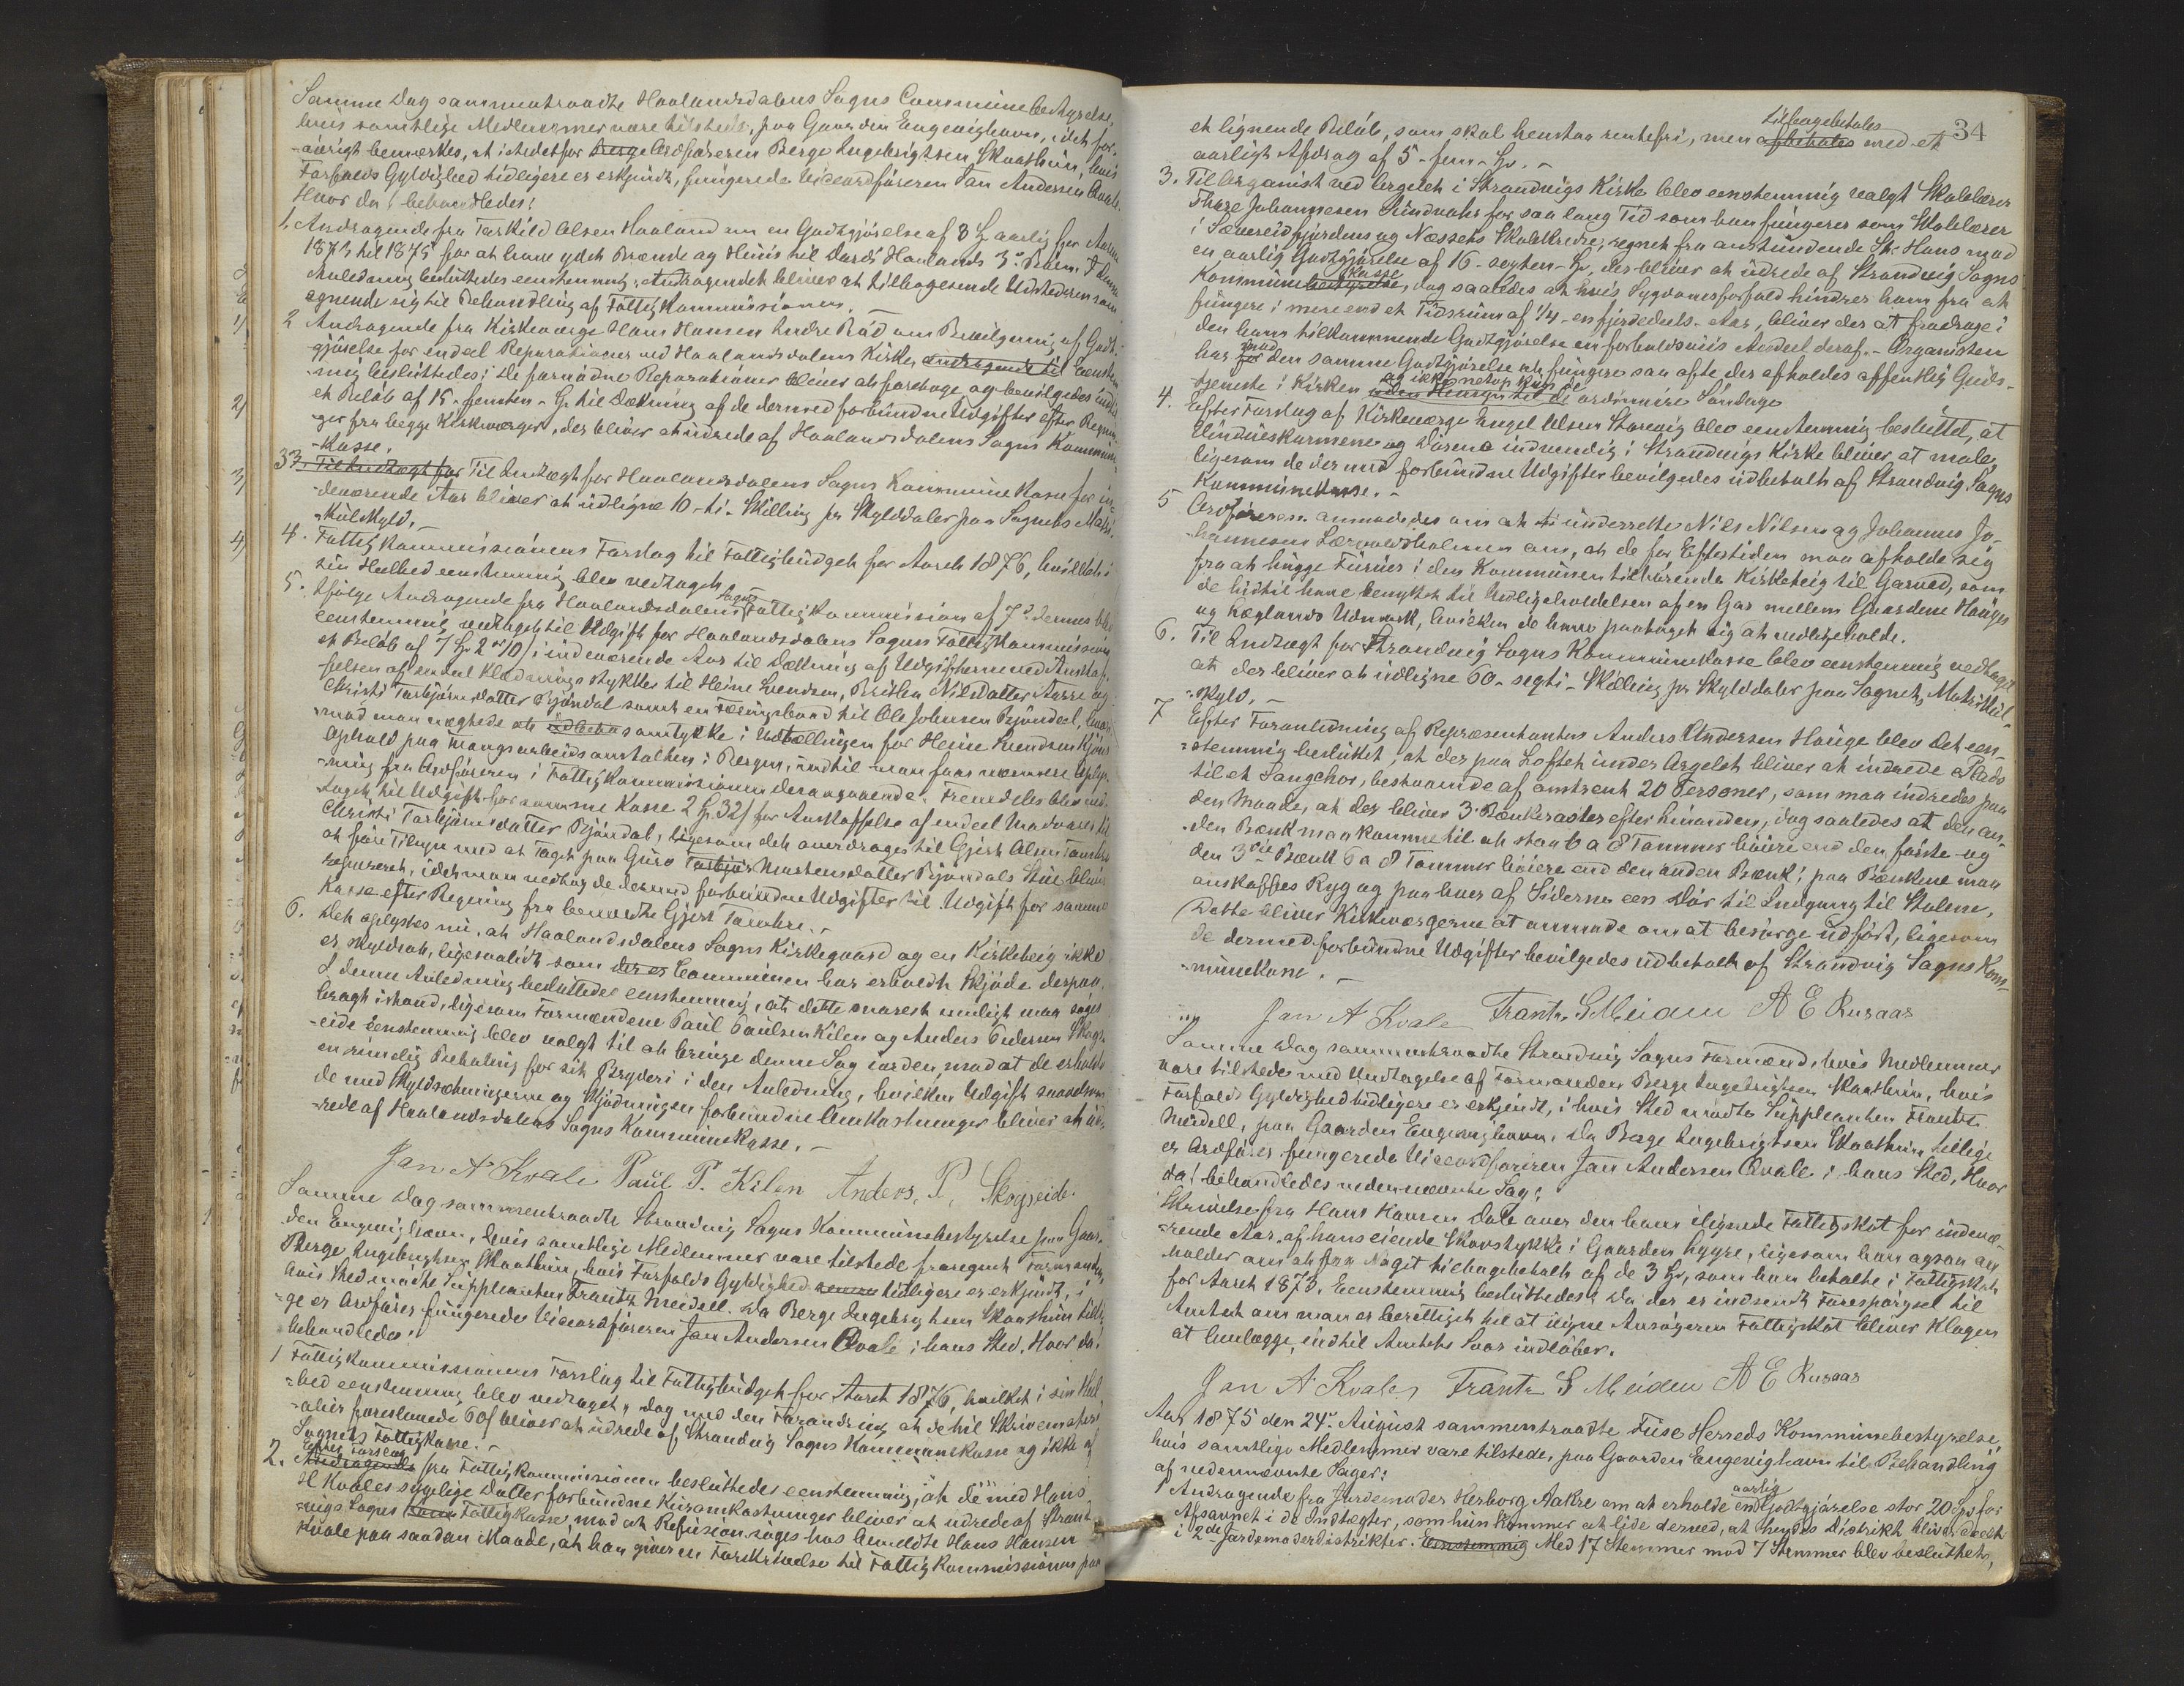 Samme Dag sammentraadte Haalandsdalens Sogns Communebestyrelse,
hvis samtlige Medlemmer vare tilstede, paa Gaarden Engevighavn, idet for-
-øvrigt bemærkes, at istedetfor Berge Ordføreren Berge Ingebrigtsen Skaathun, hvis
Forfalds Gyldighed tidligere er erkjendt, fungerede Viceordføreren Jan Andersen Qvale.
Hvor da! behandledes:
1. Andragende fra Tarkild Olsen Haaland om en Godtgjørelse af 3 Spd aarlig for Aarene
1873 til 1875 for at have ydet Brænde og Huus til Lards Haalands 3de Børn. I denne
Anledning besluttedes eenstemmig: Andragendet bliver at tilbagesende Udstederen som
egnende sig til Behandling af Fattigkommissionen.
2 Andragende fra Kirkeværge Hans Hansen Indre Bø om Bevilgning af Godt-
gjørelse for endeel Reparationer ved Haalandsdalens Kirke, andragende til Eenstem-
mig besluttedes: De fornødne Reparationer bliver at foretage og bevilgedes indtil
et Beløb af 15 - femten - Spd til Dækning af de dermed forbundne Udgifter efter Regnin-
ger fra begge Kirkeværger, der bliver at udrede af Haalandsdalens Sogns Kommune-
-kasse.
33. Til Indtægt for Til Indtægt for Haalandsdalens Sogns Kommunekasse for in-
deværende Aar bliver at udligne 10 - ti - Skilling pr Skylddaler paa Sognets Matri-
-kulskyld. -
4. Fattigkommissionens Forslag til Fattigbudget for Aaret 1876, hvilket i
sin Heelhed eenstemmig blev vedtaget.
5. Ifølge Andragende fra Haalandsdalens Sogns Fattigkommission af 7de dennes blev
eenstemmig vedtaget til Udgift for Haalandsdalens Sogns Fattigkommission
et Beløb af 7 Spd 2 ort 10 s i indeværende Aar til Dækning af Udgifterne ved Anskaf-
felsen af endeel Klædningsstykker til Heine Svendsen, Brithe Nilsdatter Aarre og
Christi Tarbjørnsdatter Bjøndal samt en Fæsingsband til Ole Johnsen Bjøndal, hvor-
mod man nægtede at udbeta samtykke i Udtællingen for Heine Svendsen Kjøns
Ophold paa Tvangsarbeidsanstalten i Bergen, indtil man faar nærmere Oplys-
-ning fra Ordføreren i Fattigkommissionen derangaaende. Fremdeles blev ved-
taget til Udgift for samme Kasse 2 Spd 32 s for Anskaffelse af endeel Madvarer til
Christi Tarbjørnsdatter Bjøndal, ligesom det overdrages til Gjert Olsen Tombre
at føre Tilsyn med at Taget paa Guro Torbjør Mostensdatter Bjøndals Stue bliver
repareret, idet man vedtog de dermed forbundne Udgifter til Udgift for samme
Kasse efter Regning fra bemeldte Gjert Tombre. -
6. Det oplystes nu, at Haalandsdalens Sogns Kirkegaard og en Kirketeig ikke
er skyldsat, ligesaalidt som der er Communen har erholdt Skjøde derpaa.
I denne Anledning besluttedes eenstemmig, at dette snarest muligt maa søges
bragt istand, ligesom Formændene Paul Paulsen Kilen og Anders Pedersen Skogs-
-eide eenstemmig blev valgt til at bringe denne Sag iorden, mod at de erholder
en rimelig Betaling for sit Bryderi i den Anledning, hvilken Udgift saavelsom
de med Skyldsætningerne og Skjødningen forbundne Omkostninger bliver at ud-
rede af Haalandsdalens Sogns Kommunekasse. -
Jan A Kvale Paul P. Kilen Anders. P. Skogseide.
Samme Dag sammentraadte Strandvig Sogns Kommunebestyrelse paa Gaar-
den Engevighavn, hvis samtlige Medlemmer vare tilstede fraregnet Formanden
Berge Ingebrigtsen Skaathun, hvis Forfalds Gyldighed tidligere er erkjendt, i
hvis Sted mødte Suppleanten Frantz Meidell. Da Berge Ingebrigtsen Skaathun tilli-
-ge er Ordfører fungerede Viceordføreren Jan Andersen Qvale i hans Sted. Hvor da!
behandledes:
1 Fattigkommissionens Forslag til Fattigbudget for Aaret 1876, hvilket i sin Heel-
-hed eenstemmig blev vedtaget, dog med den Forandring, at de til Skrivemateri-
-alier foreslaaede 60 s bliver at udrede af Strandvig Sogns Kommunekasse og ikke af
Sognets Fattigkasse. -
2. Andragende Efter Forslag fra Fattigkommissionen besluttedes eenstemmig, at de med Hans
H Kvales sygelige Datter forbundne Kuromkostninger bliver at udrede af Strand-
-vigs Sogns Kom Fattigkasse mod at Refusion søges hos bemeldte Hans Hansen
Kvale paa saadan Maade, at han giver en Forskrivelse til Fattigkommissionen paa
34
et lignende Beløb, som skal henstaa rentefri, men afbetales tilbagebetales med et
aarligt Afdrag af 5 - fem - Spd. -
3. Til Organist ved Orgelet i Strandvigs Kirke blev eenstemmig valgt Skolelærer
Thore Johannesen Sundvohr for saa lang Tid som han fungerer som Skolelærer
i Sævereidfjordens og Næssets Skolekredse, regnet fra anstundende St. Hans mod
en aarlig Godtgjørelse af 16 - sexten - Spd, der bliver at udrede af Strandvig Sogns
Kommunebestyrelse kasse, dog saaledes at hvis Sygdomsforfald hindrer ham fra at
fungere i mere end et Tidsrum af 1/4 - en fjerdedeels - Aar, bliver der at fradrage i
den ham tilkommende Godtgjørelse en forholdsviis Andeel deraf. - Organisten
har for mod den samme Godtgjørelse at fungere saa ofte der afholdes offentlig Guds-
tjeneste i Kirken uden Hensyn til de og ikke netop kun de ordinaire Søndage
4. Efter Forslag af Kirkeværge Engel Olsen Størvig blev eenstemmig besluttet, at
Vindueskarmene og Dørene indvendig i Strandvigs Kirke bliver at male,
ligesom de dermed forbundne Udgifter bevilgedes udbetalt af Strandvig Sogns
Kommunekasse. -
5 Ordføreren anmodedes om at ti underrette Nils Nilsen og Johannes Jo-
hannesen Lærvoldsholmen om, at de for Eftertiden maa afholde sig
fra at hugge Furuer i den Kommunen tilhørende Kirketeig til Garved, som
de hidtil have benyttet til Vedligeholdelsen af en Gar mellem Gaardene Hougen
og Røglands Udmark, hvilken de have paataget sig at vedligeholde.
6. Til Indtægt for Strandvig Sogns Kommunekasse blev eenstemmig vedtaget
at der bliver at udligne 60 - segti - Skilling pr Skylddaler paa Sognets Matrikul-
-skyld. -
7 Efter Foranledning af Repræsentanten Anders Andersen Houge blev det een-
stemmig besluttet, at der paa Loftet under Orgelet bliver at indrede Plads
til et Sangchor, bestaaende af omtrent 20 Personer, som maa indredes paa
den Maade, at der bliver 3 Bænkerader efter hinanden, dog saaledes at den an-
den Bænk maa komme til at staa 6 a 8 Tommer høiere end den første og
den 3die Bænk 6 a 8 Tommer høiere end den anden Bænk; paa Bænkene maa
anskaffes Ryg og paa hver af Siderne een Dør til Indgang til Stolene.
Dette bliver Kirkeværgerne at anmode om at besørge udført, ligesom
de dermed forbundne Udgifter bevilgedes udbetalt af Strandvig Sogns Kom-
-munekasse. -
Jan A Kvale Frantz S Meidell A E Rusaas
Samme Dag sammentraadte Strandvig Sogns Formænd, hvis Medlemmer
vare tilstede med Undtagelse af Formanden Berge Ingebrigtsen Skaathun, hvis
Forfalds Gyldighed tidligere er erkjendt, i hvis Sted mødte Suppleanten Frantz
Meidell, paa Gaarden Engevighavn. Da Berge Ingebrigtsen Skaathun tillige
er Ordfører fungerede Viceordføreren Jan Andersen Qvale i hans Sted. Hvor
da! behandledes nedennævnte Sag:
Skrivelse fra Hans Hansen Dale over den ham ilignede Fattigskat for indevæ-
rende Aar, af hans eiende Skovstykke i Gaarden Lygre, ligesom han ogsaa an-
holder om at faa Noget tilbagebetalt af de 3 Spd, som han betalte i Fattigskat
for Aaret 1873. Eenstemmig besluttedes: Da der er indsendt Forespørgsel til
Amtet om man er berettiget til at iligne Ansøgeren Fattigskat bliver Klagen
at henlægge, indtil Amtets Svar indløber.
Jan A Kvale Frantz S Meidell A E Rusaas
Aar 1875 den 24de August sammentraadte Fuse Herreds Kommunebestyrelse,
hvis samtlige Medlemmer vare tilstede, paa Gaarden Engevighavn til Behandling
af nedennævnte Sager:
1 Andragende fra Jordemoder Herborg Aakre om at erholde en aarlig Godtgjørelse stor 20 Spd for
Afsavnet i de Indtægter, som hun kommer at lide derved, at hendes Distrikt bliver deelt
i 2de Jordemoderdistrikter. Eenstemmig Med 17 Stemmer mod 7 Stemmer blev besluttet,